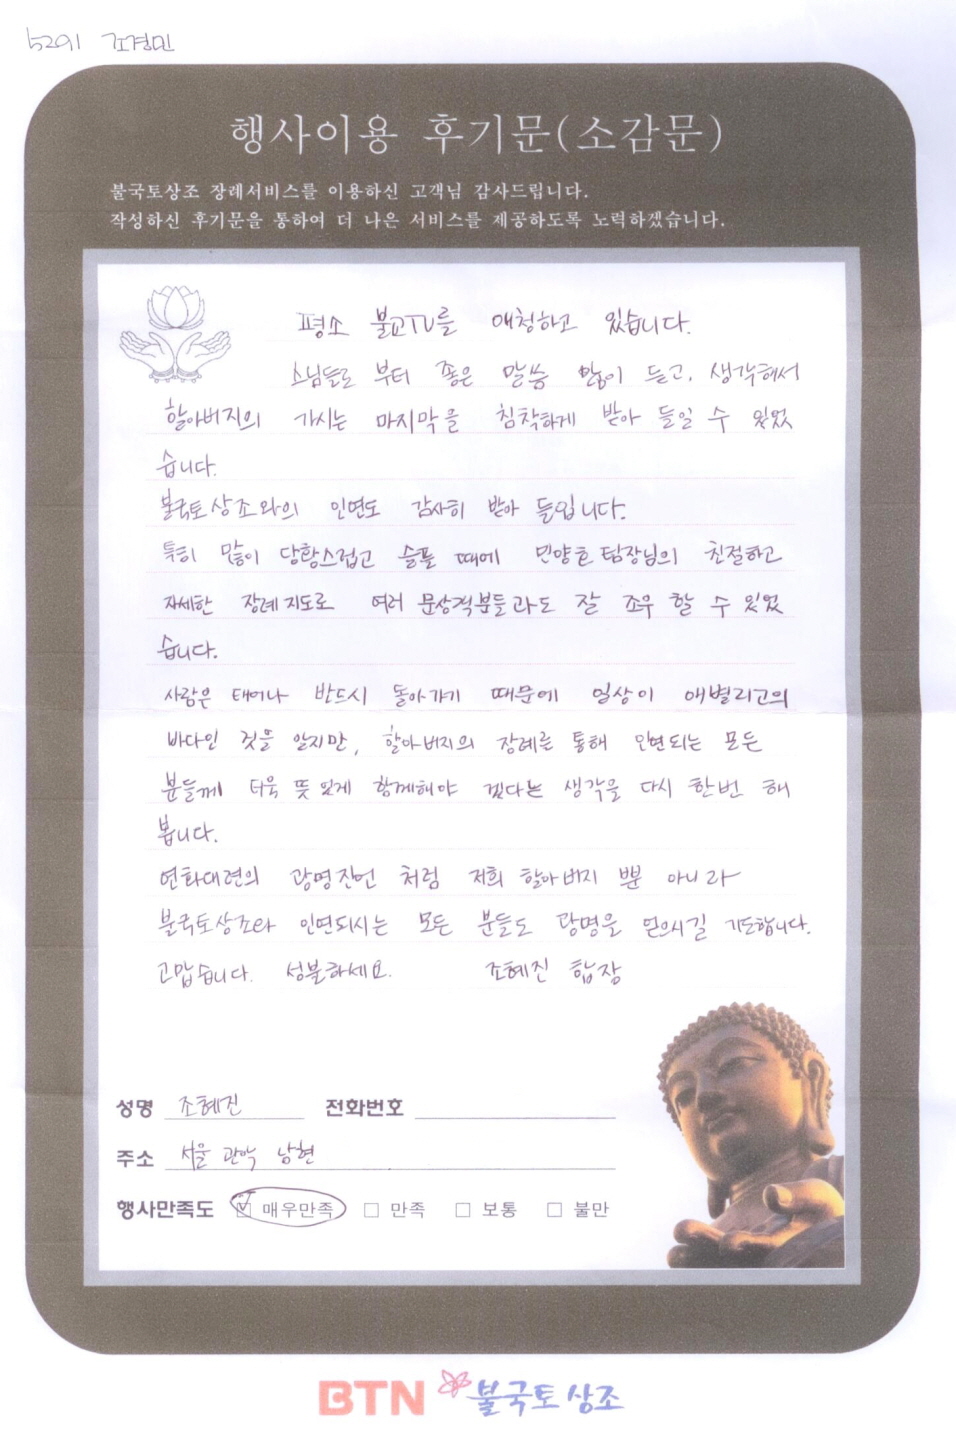 5291 조경민
행사이용 후기문(소감문)
불국토상조 장례서비스를 이용하신 고객님 감사드립니다.
작성하신 후기문을 통하여 더 나은 서비스를 제공하도록 노력하겠습니다.
평소 불교TV를 애청하고 있습니다.
스님들로 부터 좋은 말씀 많이 듣고, 생각해서
할아버지의 가시는 마지막을 침착하게 받아 들일 수 있었
습니다.
불국토상조와의 인연도 감사히 받아 들입니다.
특히 많이 당황스럽고 슬플 때에 민양호 팀장님의 친절하고
자세한 장례지도로 여러 문상객분들과도 잘 조우 할 수 있었
습니다.
사람은 태어나 반드시 돌아가기 때문에 일상이 애별리고의
바다인 것을 알지만, 할아버지의 장례를 통해 인연되는 모든
분들께 더욱 뜻 있게 함께해야 겠다는 생각을 다시 한번 해
봅니다.
연화대련의 광명진언 처럼 저희 할아버지 뿐 아니라
불국토상조와 인연되시는 모든 분들도 광명을 얻으시길 기도합니다.
고맙습니다. 성불하세요. 조혜진 합장
성명 조혜진 전화번호
주소 서울 관악 남현
행사만족도 ☑ 매우만족 □ 만족 □ 보통 □ 불만
BTN 불국토상조